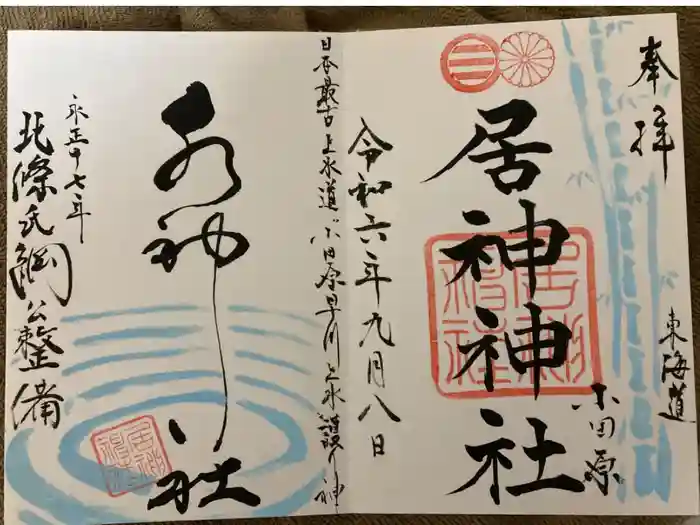 奉拝
東海道
小田原
居神神社
令和六年九月八日
日本最古上水道小田原早川上水護り神
水神社
永正十七年
北條氏綱公整備